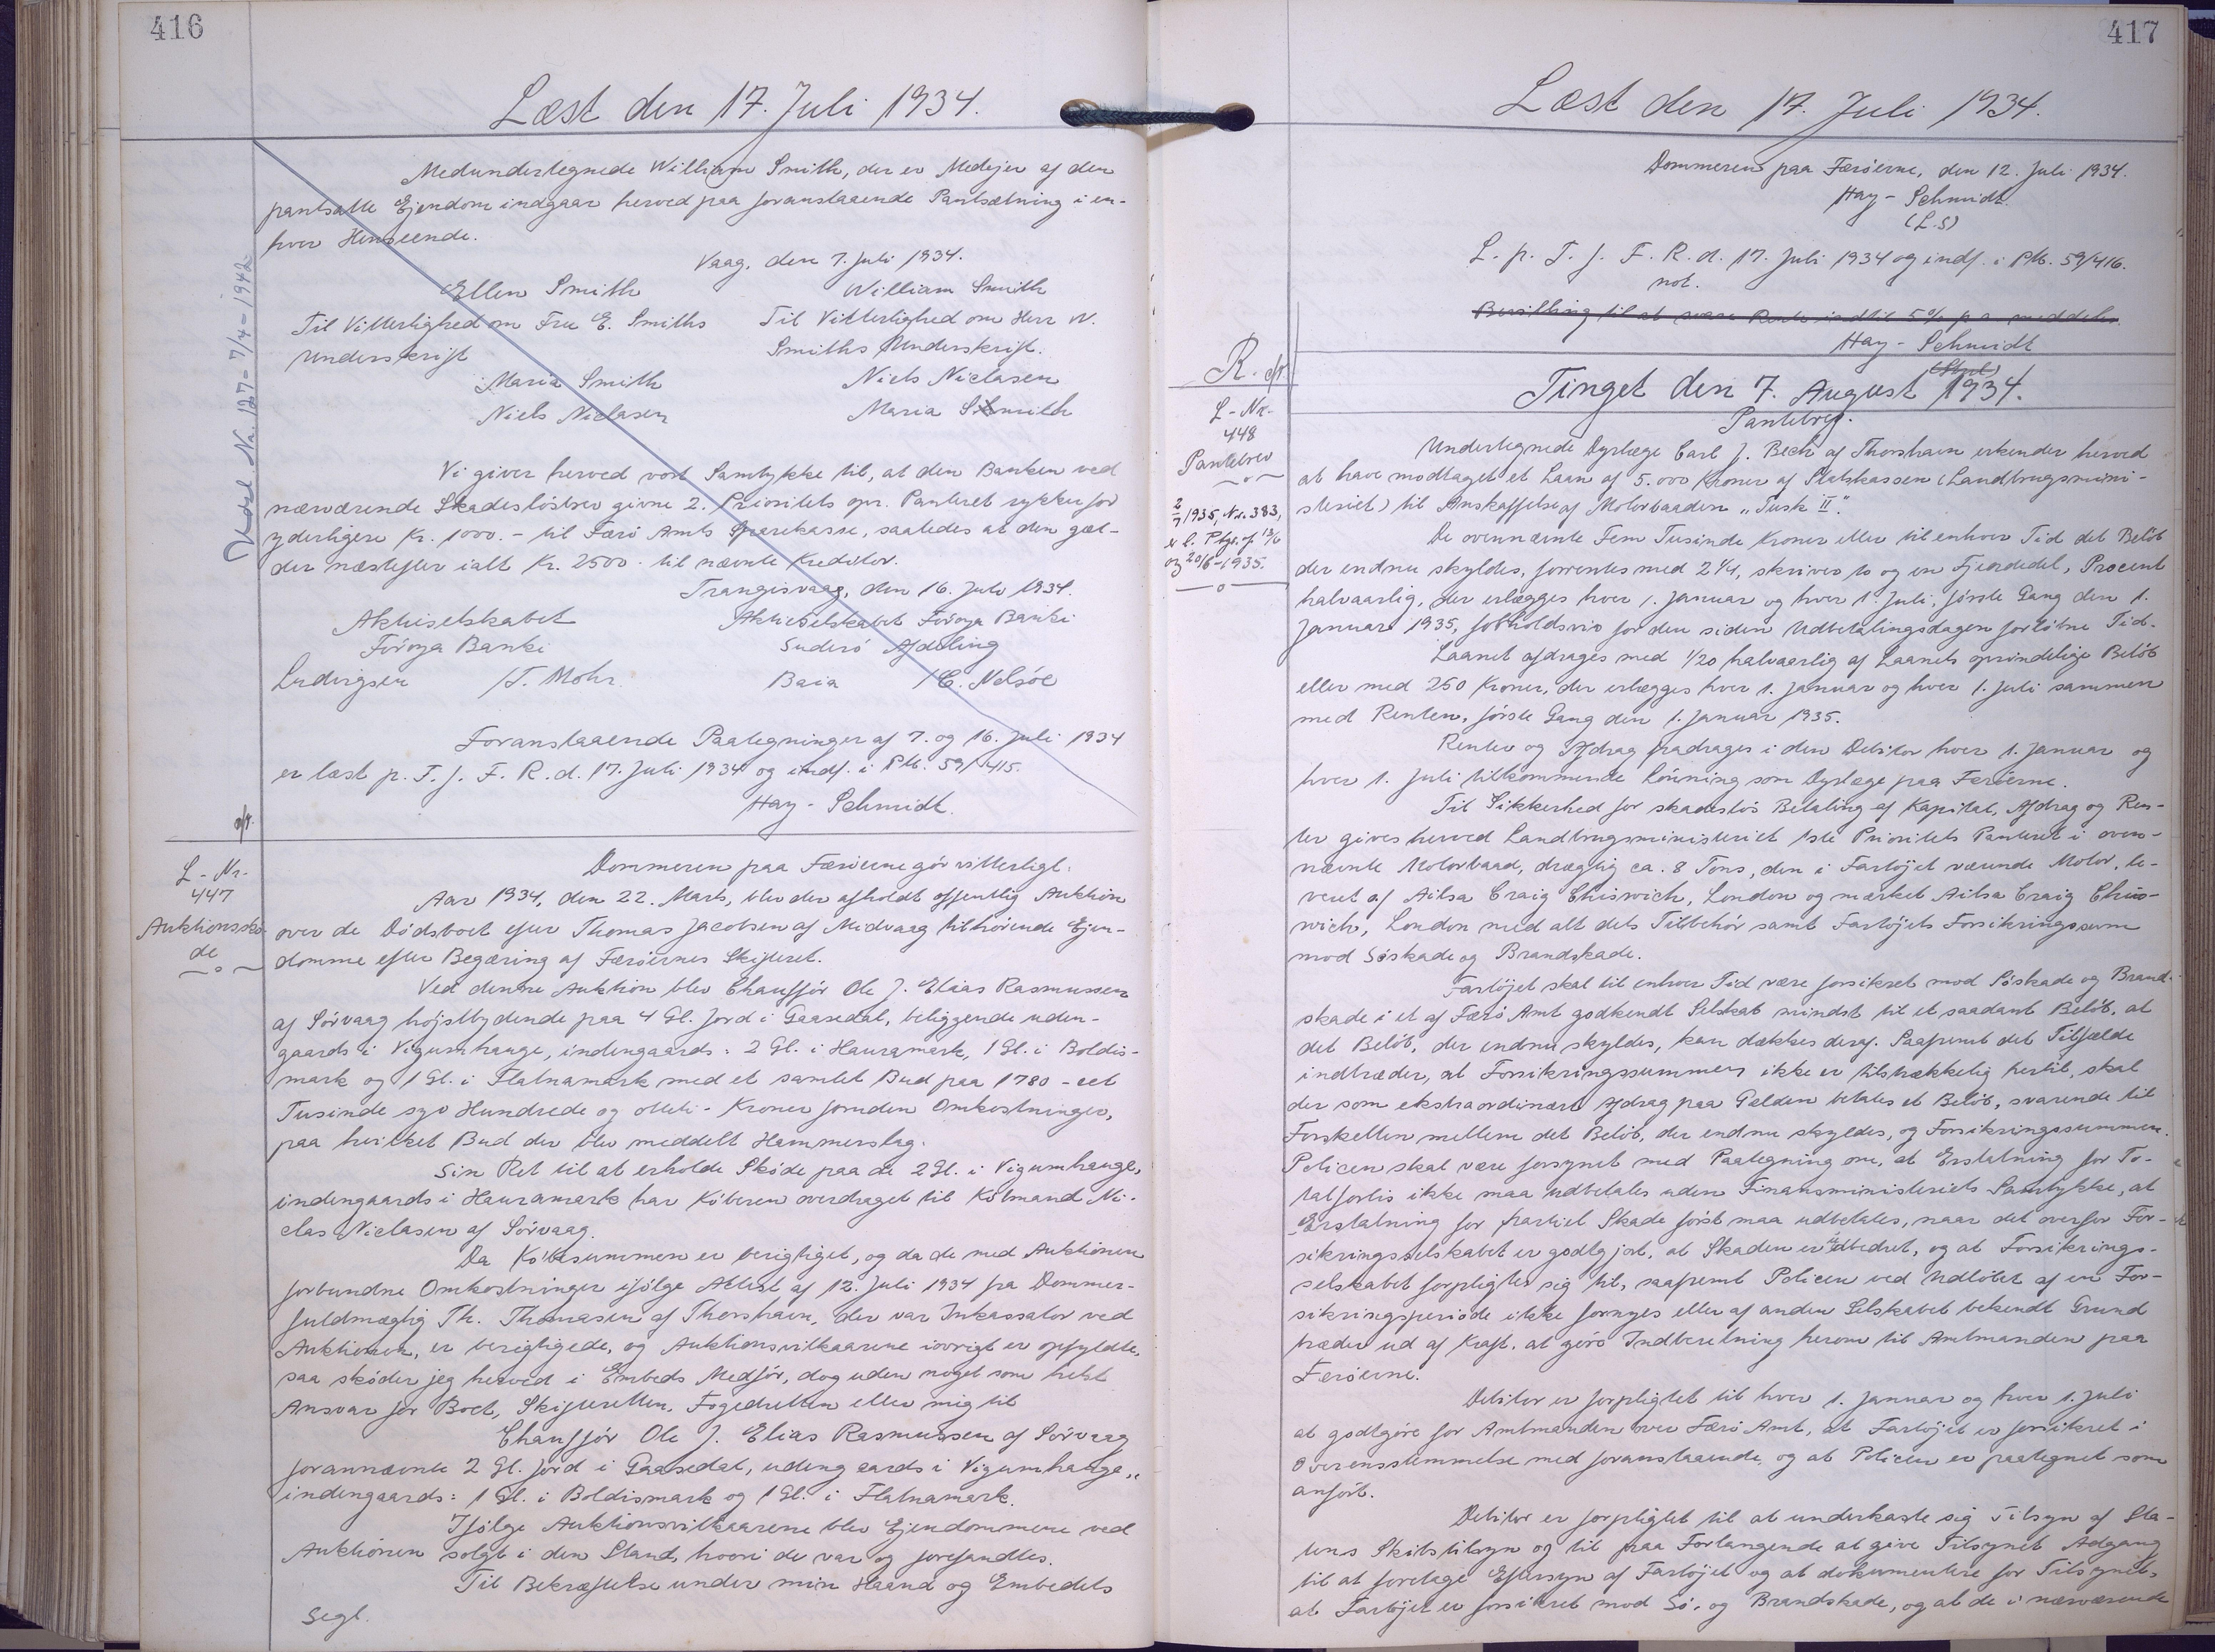 416
Læst den 17. Juli 1934.
Medundertegnede William Smith, der er Medejer af den
pantsatte Ejendom indgaar herved paa foranstaaende Pantsætning i en-
hver Henseende.
Vaag, den 7. Juli 1934.
Ellen Smith
William Smith
Til Vitterlighed om Fru E. Smiths
Underskrift
Til Vitterlighed om Herr W.
Smiths Underskrift.
Maria Smith
Niels Niclasen
Niels Niclasen
Maria Smith
Udsl. Nr. 127 - 7/4 - 1942
Vi giver herved vort Samtykke til, at den Banken ved
nærværende Skadesløsbrev givne 2. Prioritets opr. Panteret rykker for
yderligere Kr. 1000.- til Færø Amts Sparekasse, saaledes at den gæl-
der næstefter ialt Kr. 2500.- til nævnte Kreditor.
Trangisvaag, den 16. Juli 1934.
Aktieselskabet
Føroya Banki
Aktieselskabet Føroya Banki
Suderø Afdeling
Ludvigsen /T. Mohr.
Baia /C. Nolsøe
Foranstaaende Paategninger af 7. og 16. Juli 1934
er læst p. T. f. F. R. d. 17. Juli 1934 og indf. i Ptb. 59/415.
Hay-Schmidt.
L-Nr.
447
Auktionsskø-
de
Dommeren paa Færøerne gør vitterligt:
Aar 1934, den 22. Marts, blev der afholdt offentlig Auktion
over de Dødsboet efter Thomas Jacobsen af Midvaag tilhørende Ejen-
domme efter Begæring af Færøernes Skifteret.
Ved denne Auktion blev Chauffør Ole J. Elias Rasmussen
af Sørvaag højstbydende paa 4 Gl. Jord i Gaasedal, beliggende uden-
gaards i Vigumhauge, indengaards: 2 Gl. i Hauramark, 1 Gl. i Boldis-
mark og 1 Gl. i Flatnamark med et samlet Bud paa 1780 - eet
Tusinde syv Hundrede og otteti - Kroner foruden Omkostninger,
paa hvilket Bud der blev meddelt Hammerslag.
Sin Ret til at erholde Skøde paa de 2 Gl. i Vigumhauge,
indengaards i Hauramark har Køberen overdraget til Købmand Ni-
clas Niclasen af Sørvaag.
Da Købesummen er berigtiget, og da de med Auktionen
forbundne Omkostninger ifølge Attest af 12. Juli 1934 fra Dommer-
fuldmægtig Th. Thomasen af Thorshavn, der var Inkassator ved
Auktionen, er berigtigede, og Auktionsvilkaarene iøvrigt er opfyldte,
saa skøder jeg herved i Embeds Medfør, dog uden noget som helst
Ansvar for Boet, Skifteretten, Fogedretten eller mig til
Chauffør Ole J. Elias Rasmussen af Sørvaag
forannævnte 2 Gl. Jord i Gaasedal, udengaards i Vigumhauge,
indengaards: 1 Gl. i Boldismark og 1 Gl. i Flatnamark.
Ifølge Auktionsvilkaarene blev Ejendommene ved
Auktionen solgt i den Stand, hvori de var og forefandtes.
Til Bekræftelse under min Haand og Embedets
Segl.
417
Læst den 17. Juli 1934.
Dommeren paa Færøerne, den 12. Juli 1934.
Hay-Schmidt.
(L.S)
L. p. T. f. F. R. d. 17. Juli 1934 og indf. i Ptb. 59/416.
not.
Bevilling til at svare Rente indtil 5% p a meddeles
Hay-Schmidt
Tinget den 7. August 1934.
R.
L-Nr.
448
Pantebrev
2/7 1935, Nr. 383,
og 20/6-1935.
Pantebrev.
Undertegnede Dyrlæge Carl J. Bech af Thorshavn erkender herved
at have modtaget et Laan af 5.000 Kroner af Statskassen (Landbrugsmini-
steriet) til Anskaffelse af Motorbaaden "Tusk II".
De ovennævnte Fem Tusinde Kroner eller til enhver Tid det Beløb
der endnu skyldes, forrentes med 2 1/4, skriver to og en Fjerdedel, Procent
halvaarlig, der erlægges hver 1. Januar og hver 1. Juli, første Gang den 1.
Januar 1935, forholdsvis for den siden Udbetalingsdagen forløbne Tid.
Laanet afdrages med 1/20 halvaarlig af Laanets oprindelige Beløb
eller med 250 Kroner, der erlægges hver 1. Januar og hver 1. Juli sammen
med Renten, første Gang den 1. Januar 1935.
Renter og Afdrag fradrages i den Debitor hver 1. Januar og
hver 1. Juli tilkommende Lønning som Dyrlæge paa Færøerne.
Til Sikkerhed for skadesløs Betaling af Kapital, Afdrag og Ren-
ter gives herved Landbrugsministeriet 1ste Prioritets Panteret i oven-
nævnte Motorbaad, drægtig ca. 8 Tons, den i Fartøjet værende Motor, le-
veret af Ailsa Craig Chiswich, London og mærket Ailsa Craig Chis-
wich, London med alt dets Tilbehør samt Fartøjets Forsikringssum
mod Søskade og Brandskade.
Fartøjet skal til enhver Tid være forsikret mod Søskade og Brand-
skade i et af Færø Amt godkendt Selskab mindst til et saadant Beløb, at
det Beløb, der endnu skyldes, kan dækkes deraf. Saafremt det Tilfælde
indtræder, at Forsikringssummen ikke er tilstrækkelig hertil, skal
der som ekstraordinært Afdrag paa Gælden betales et Beløb, svarende til
Forskellen mellem det Beløb, der endnu skyldes, og Forsikringssummen.
Policen skal være forsynet med Paategning om, at Erstatning for To-
talforlis ikke maa udbetales uden Finansministeriets Samtykke, at
Erstatning for partiel Skade først maa udbetales, naar det overfor For-
sikringsselskabet er godtgjort, at Skaden er udbedret, og at Forsikrings-
selskabet forpligter sig til, saafremt Policen ved Udløbet af en For-
sikringsperiode ikke fornyes eller af anden Selskabet bekendt Grund
træder ud af Kraft, at gøre Indberetning herom til Amtmanden paa
Færøerne.
Debitor er forpligtet til hver 1. Januar og hver 1. Juli
at godtgøre for Amtmanden over Færø Amt, at Fartøjet er forsikret i
Overensstemmelse med foranstaaende, og at Policen er paategnet som
anført.
Debitor er forpligtet til at underkaste sig Tilsyn af Sta-
tens Skibstilsyn og til paa Forlangende at give Tilsynet Adgang
til at foretage Eftersyn af Fartøjet og at dokumentere for Tilsynet,
at Fartøjet er forsikret mod Sø- og Brandskade, og at de i nærværende